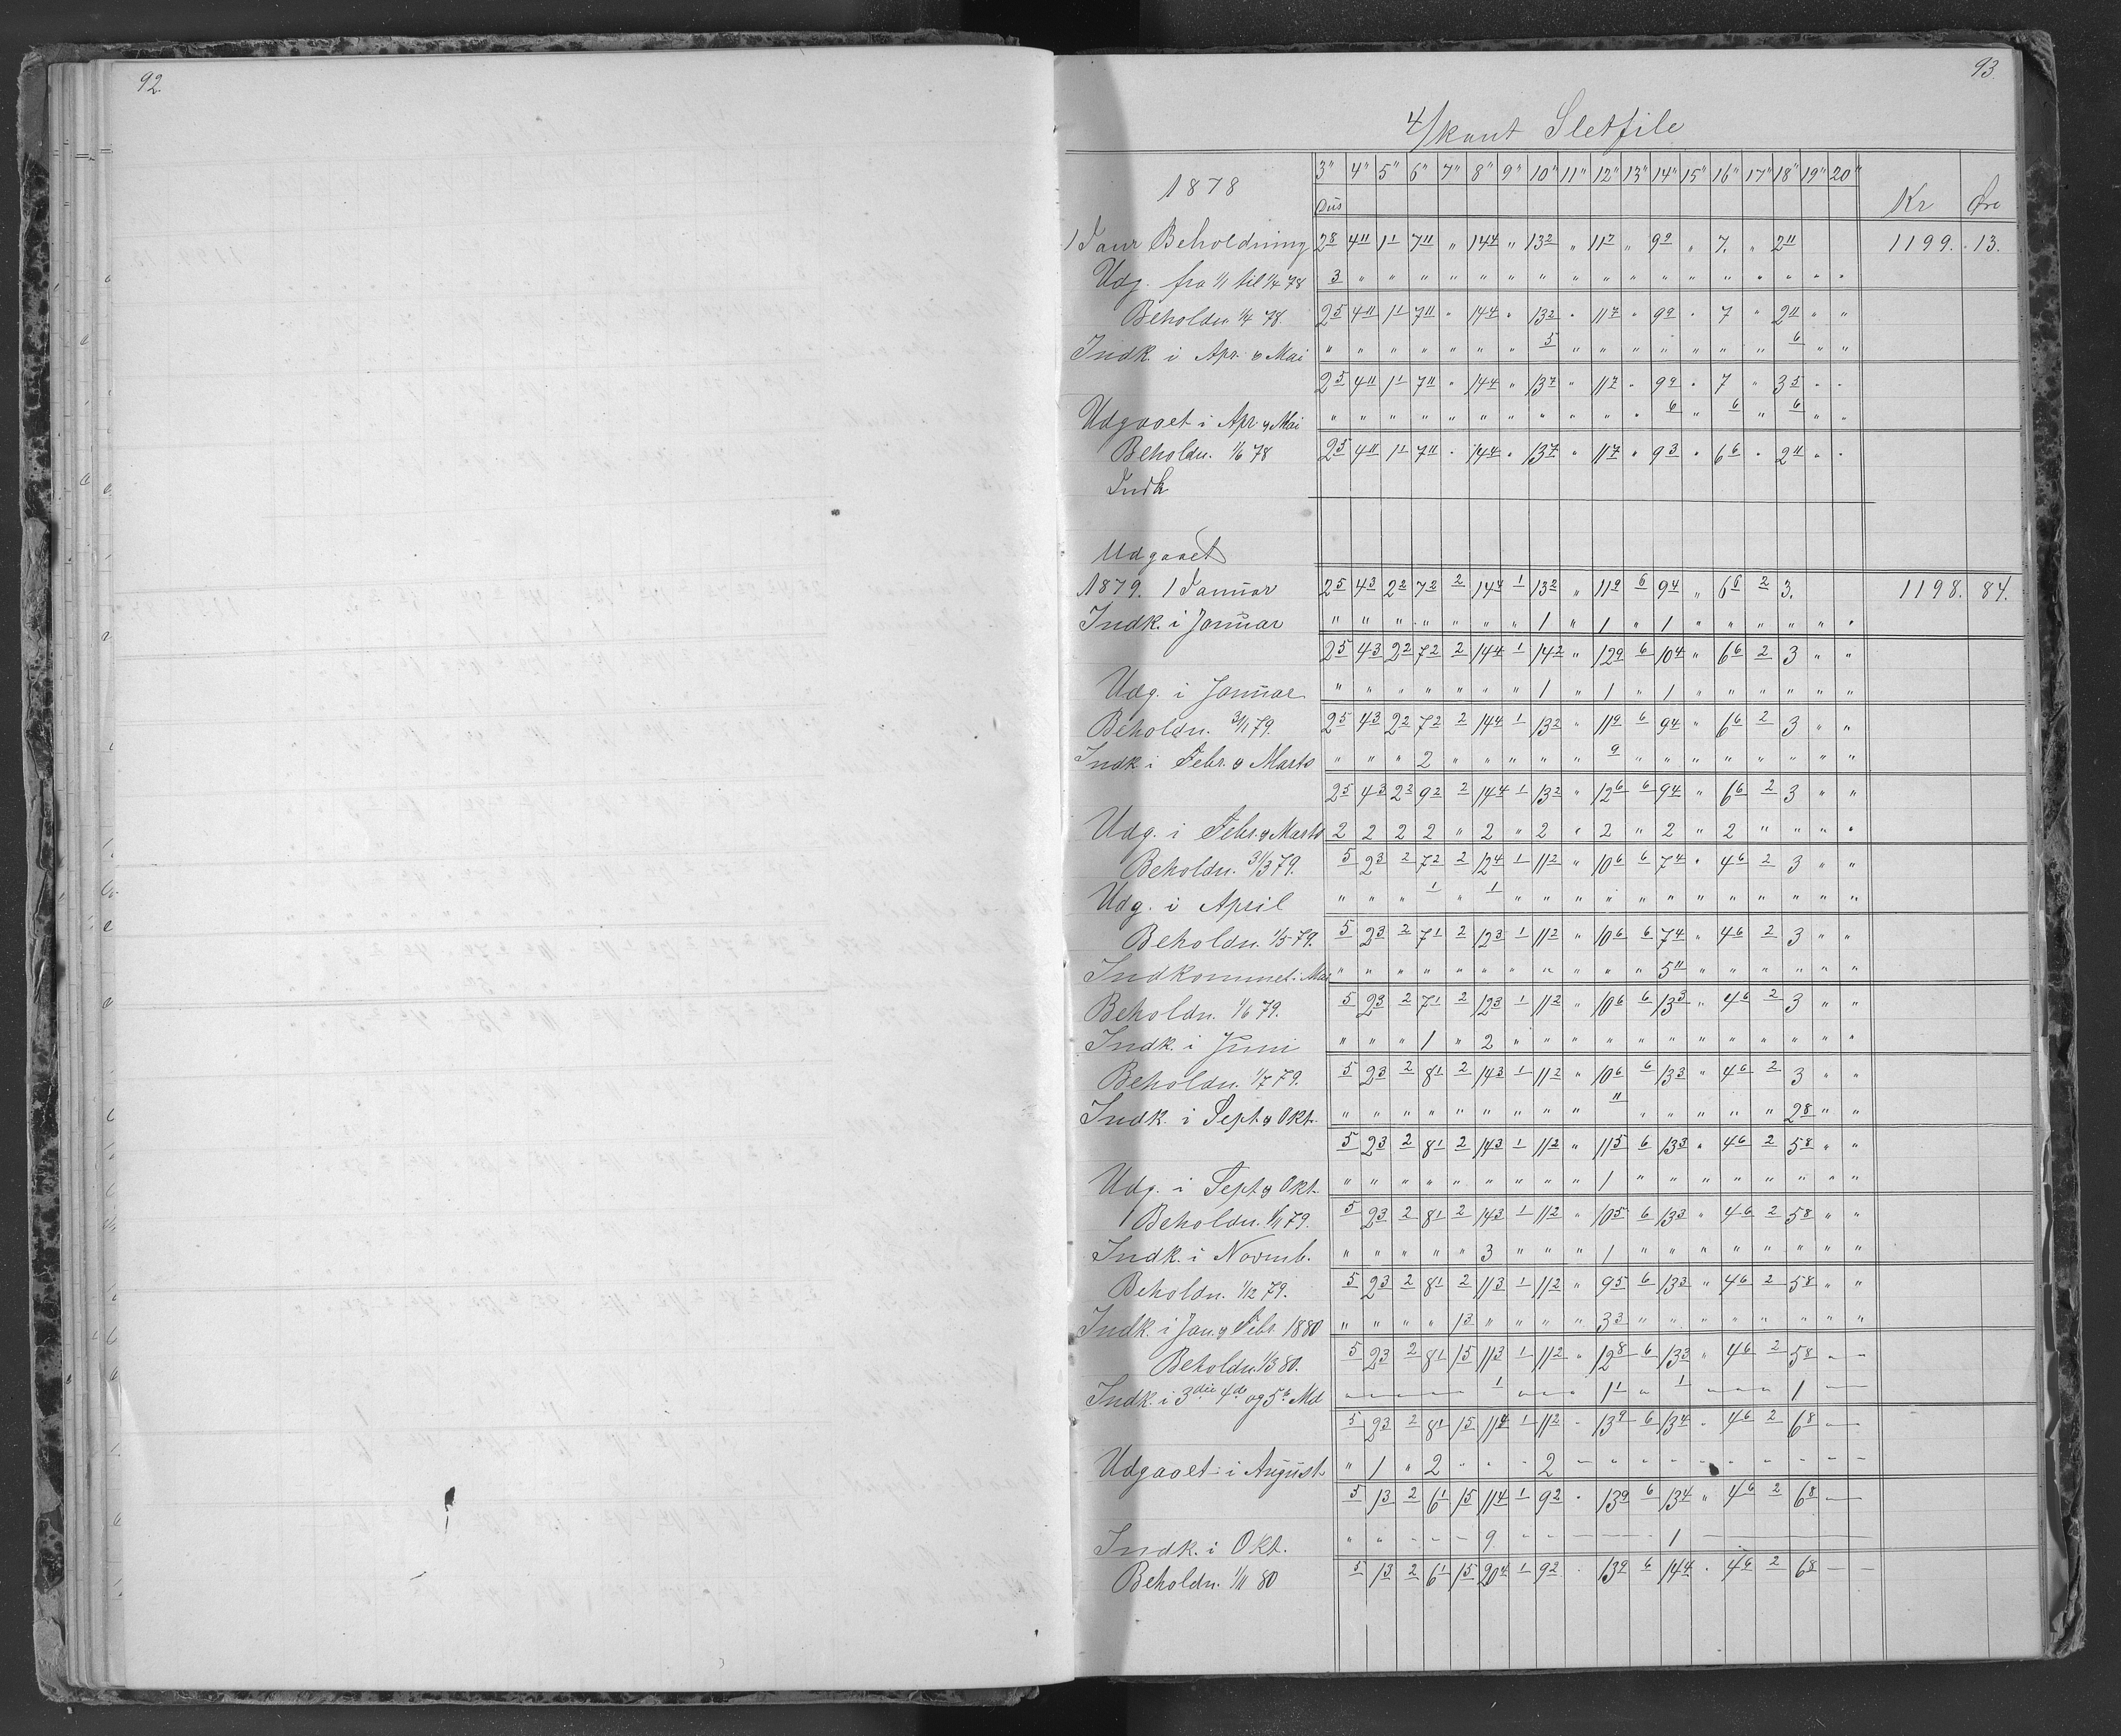 92.
93.
4/kant Sletfile
1878 3" 4" 5" 6" 7" 8" 9" 10" 11" 12" 13" 14" 15" 16" 17" 18" 19" 20" Kr Øre
Dus
1 Janr Beholdning 2 8 4 11 1 1 7 11 " 14 4 " 13 2 " 11 7 " 9 9 " 7. " 2 11 1199. 13.
Udg. fra 1/1 til 1/4 78 3 " " " " " " " " " " " " " " " " "
Beholdn. 1/4 78. 2 5 4 11 1 1 7 11 " 14 4 " 13 2 " 11 7 " 9 9 " 7 " 2 11 " "
Indk. i Apr. og Mai " " " " " " " 5 " " " " " " " 6 " "
2 5 4 11 1 1 7 11 " 14 4 " 13 7 " 11 7 " 9 9 " 7 " 3 5 " "
Udgaaet i Apr. og Mai " " " " " " " " " " " 6 " 6 " 6 " "
Beholdn. 1/6 78 2 5 4 11 1 1 7 11 " 14 4 " 13 7 " 11 7 " 9 3 " 6 6 " 2 11 " "
Indk
Udgaaet
1879. 1 Januar 2 5 4 3 2 2 7 2 2 14 4 1 13 2 " 11 9 6 9 4 " 6 6 2 3. 1198. 84.
Indk. i Januar " " " " " " " 1 " 1 " 1 " " " " " "
2 5 4 3 2 2 7 2 2 14 4 1 14 2 " 12 9 6 10 4 " 6 6 2 3 " "
Udg. i Januar " " " " " " " 1 " 1 " 1 " " " " " "
Beholdn. 31/1 79. 2 5 4 3 2 2 7 2 2 14 4 1 13 2 " 11 9 6 9 4 " 6 6 2 3 " "
Indk i Febr. og Marts " " " 2 " " " " " 9 " " " " " " " "
2 5 4 3 2 2 9 2 2 14 4 1 13 2 " 12 6 6 9 4 " 6 6 2 3 " "
Udg. i Febr. og Marts 2 2 2 2 " 2 " 2 " 2 " 2 " 2 " " " "
Beholdn. 31/3 79. 5 2 3 2 7 2 2 12 4 1 11 2 " 10 6 6 7 4 " 4 6 2 3 " "
Udg. i April " " " 1 " 1 " " " " " " " " " " " "
Beholdn. 1/5 79. 5 2 3 2 7 1 2 12 3 1 11 2 " 10 6 6 7 4 " 4 6 2 3 " "
Indkommet i Mai " " " " " " " " " " " 5 11 " " " " " "
Beholdn. 1/6 79. 5 2 3 2 7 1 2 12 3 1 11 2 " 10 6 6 13 3 " 4 6 2 3 " "
Indk. i Juni " " " 1 " 2 " " " " " " " " " " " "
Beholdn. 1/7 79. 5 2 3 2 8 1 2 14 3 1 11 2 " 10 6 6 13 3 " 4 6 2 3 " "
Indk. i Sept og Okt. " " " " " " " " " 11 " " " " " 2 8 " "
5 2 3 2 8 1 2 14 3 1 11 2 " 11 5 6 13 3 " 4 6 2 5 8 " "
Udg. i Sept og Okt. " " " " " " " " " 1 " " " " " " " "
Beholdn. 1/11 79. 5 2 3 2 8 1 2 14 3 1 11 2 " 10 5 6 13 3 " 4 6 2 5 8 " "
Indk. i Novmb. " " " " " 3 " " " 1 " " " " " " " "
Beholdn. 1/12 79. 5 2 3 2 8 1 2 11 3 1 11 2 " 9 5 6 13 3 " 4 6 2 5 8 " "
Indk. i Jan. og Febr. 1880 " " " " 1 3 " " " " 3 3 " " " " " " " "
Beholdn. 1/3 80. 5 2 3 2 8 1 1 5 11 3 1 11 2 " 12 8 6 13 3 " 4 6 2 5 8 - -
Indk. i 3die 4de og 5te Md - - - - - 1 - - - 1 1 " 1 - - - 1 - -
5 2 3 2 8 1 1 5 11 4 1 11 2 " 13 9 6 13 4 " 4 6 2 6 8 - -
Udgaaet i August " 1 " 2 " " " 2 - " " " " " " " - -
5 1 3 2 6 1 1 5 11 4 1 9 2 " 13 9 6 13 4 " 4 6 2 6 8 - -
Indk. i Okt. " " - - - 9 " - - - - 1 - - - - - -
Beholdn. 1/11 80 5 1 3 2 6 1 1 5 20 4 1 9 2 " 13 9 6 14 4 " 4 6 2 6 8 - -